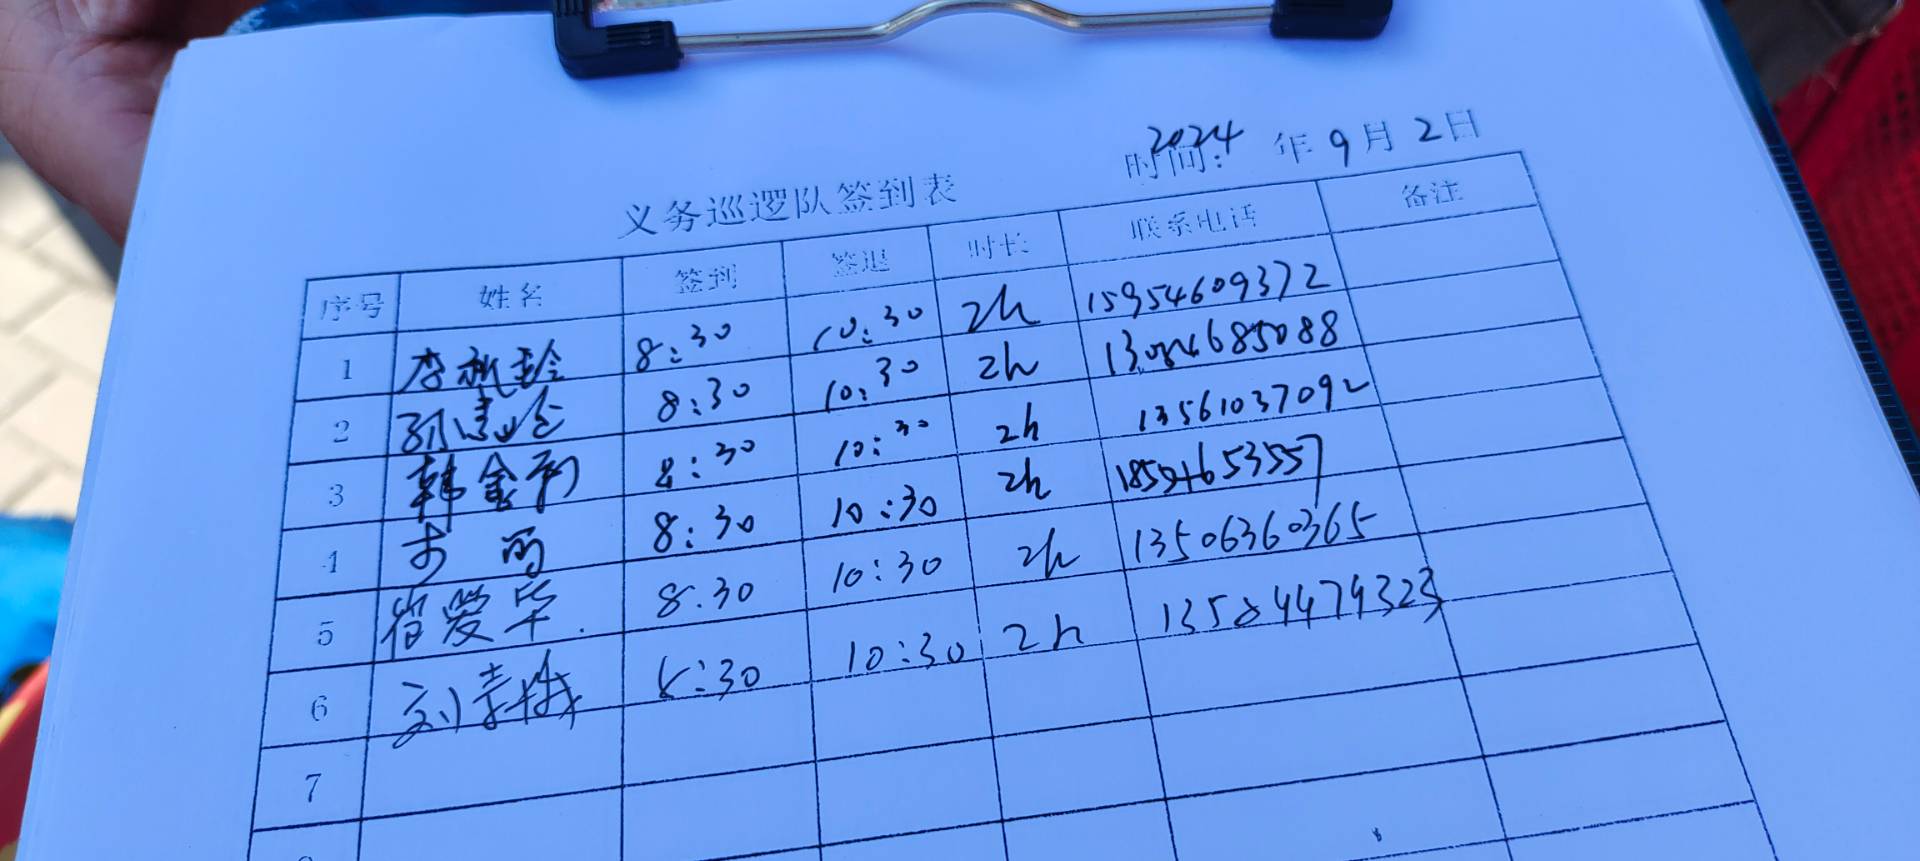 时间：2024年9月2日
义务巡逻队签到表
序号 姓名 签到 签退 时长 联系电话 备注
1 李 8:30 10:30 2h 15954609372
2 孙 8:30 10:30 2h 685088
3 韩金 8:30 10:30 2h 13561037092
4 8:30 10:30 2h 653557
5 爱华 8:30 10:30 2h 13506360365
6 刘 8:30 10:30 2h 13584474323
7